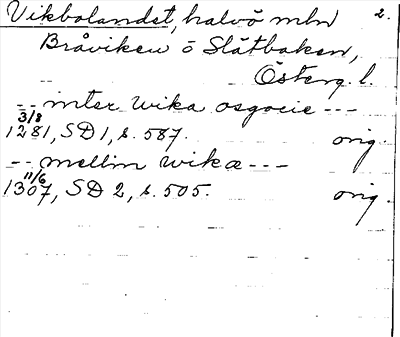 Vikbolandet, halvö mln 2.
Bråviken o Slätbaken,
Österg. l.
-- inter wika osgocie ---
3/8
1281, SD 1, s. 587. orig.
-- mellin wika ---
11/6
1307, SD 2, s. 505. orig.